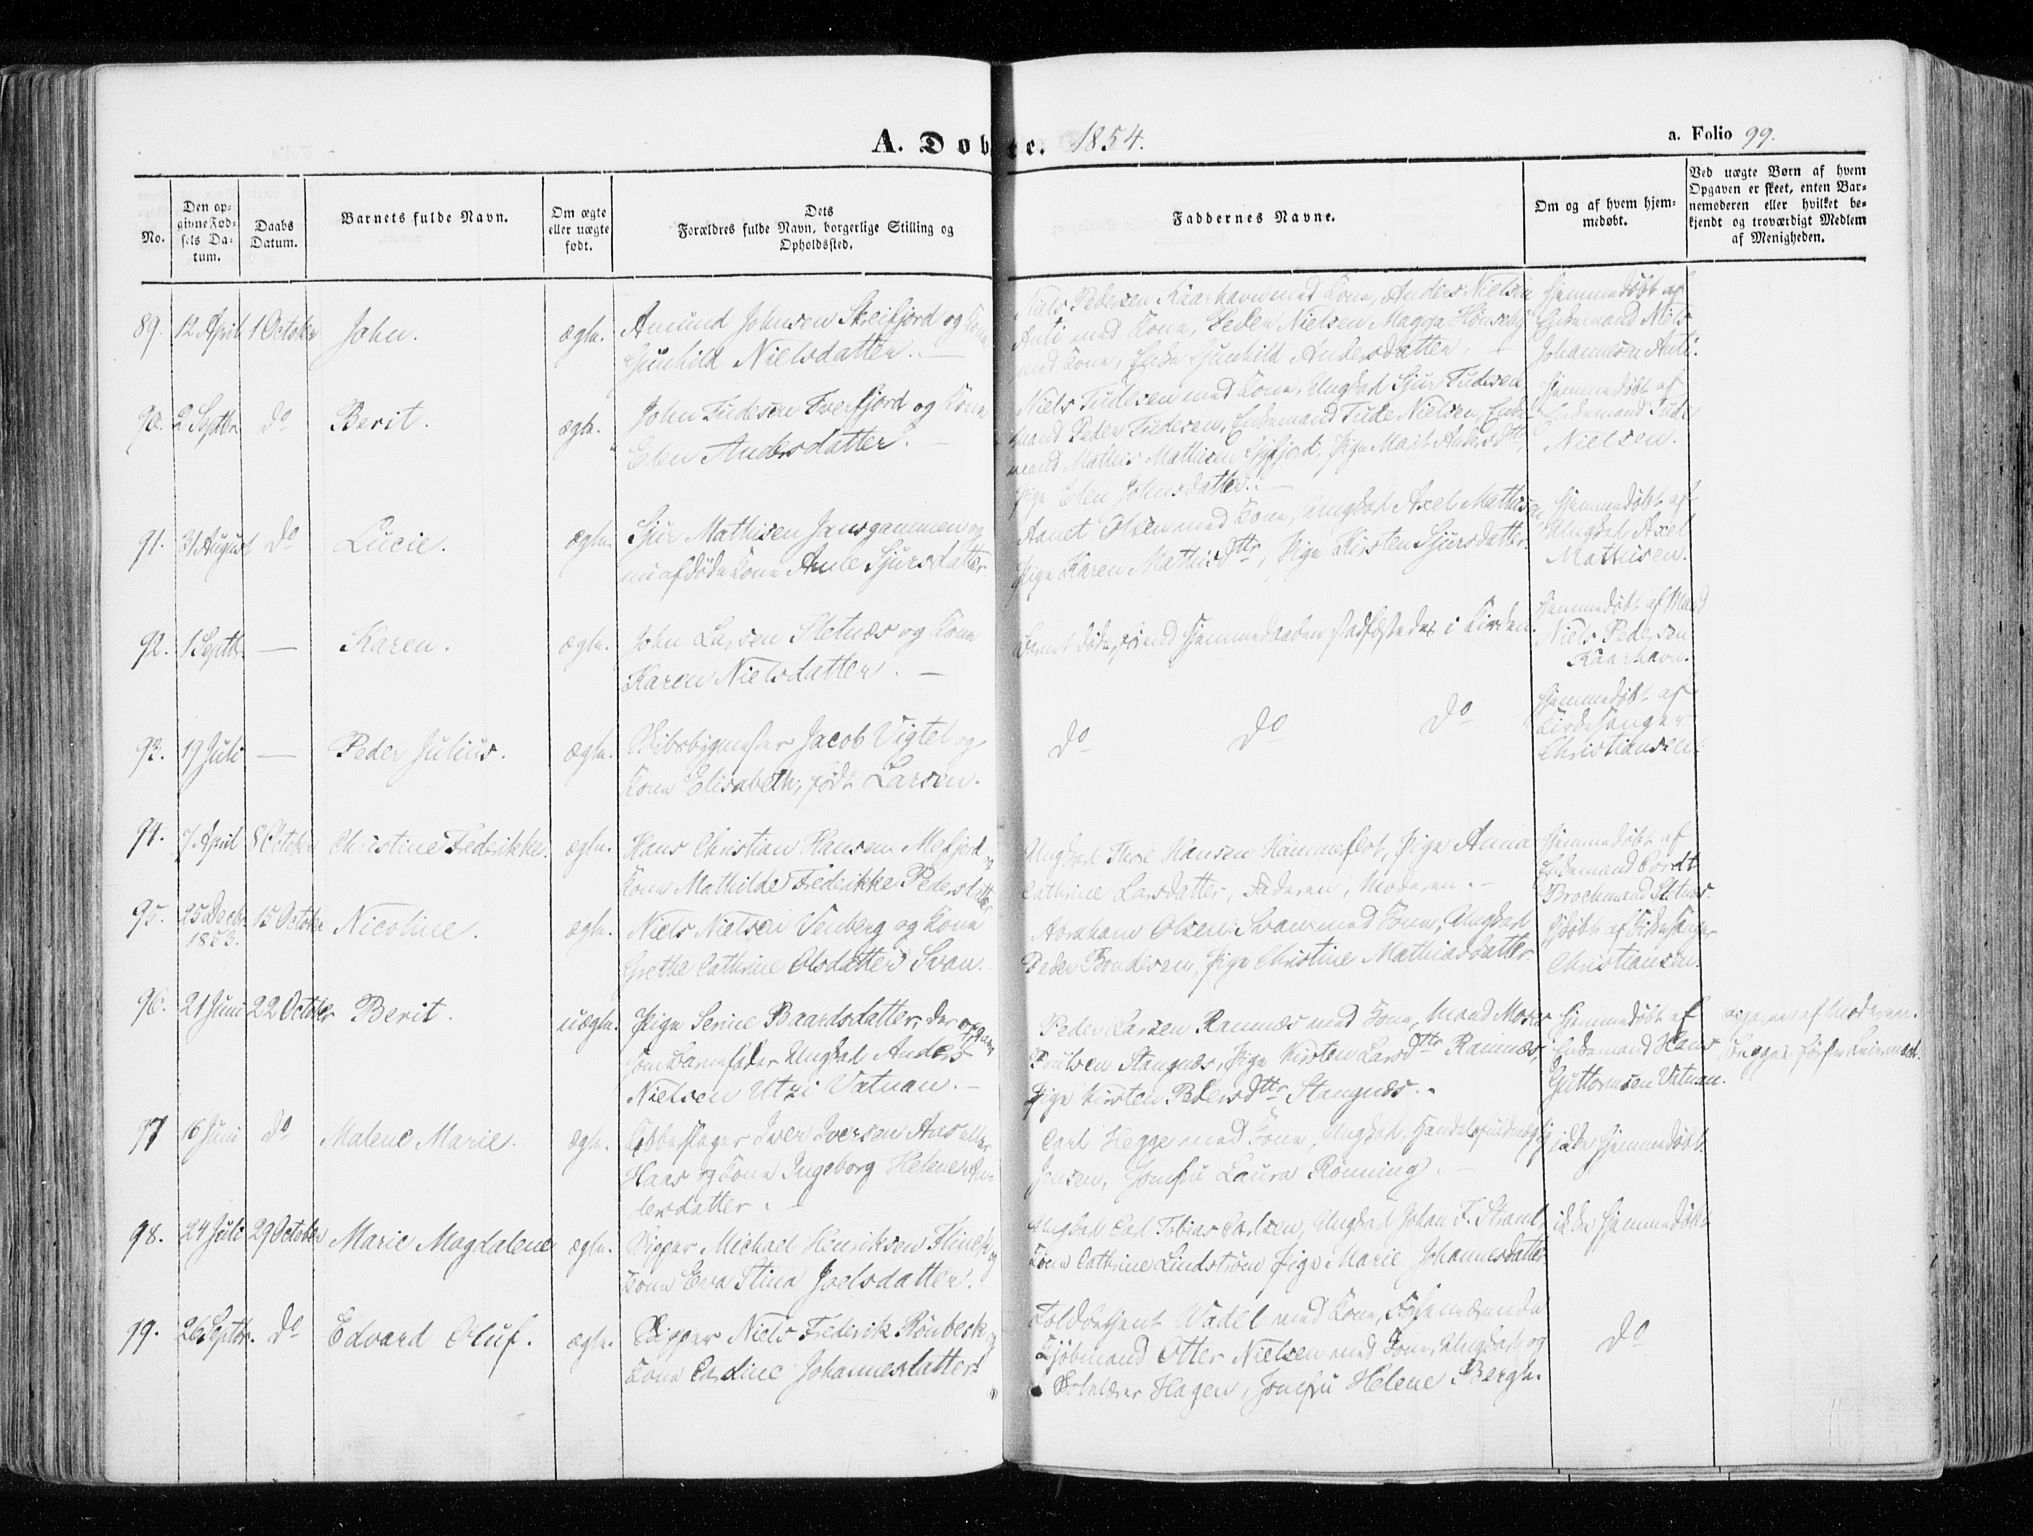 A. Döbte. 1854.
a. Folio 99.
No.
Den op-
givne Fød-
sels Da-
tum.
Daabs
Datum.
Barnets fulde Navn.
Om ægte
eller uægte
født.
Dets
Forældres fulde Navn, borgerlige Stilling og
Opholdssted.
Faddernes Navne.
Om og af hvem hjem-
medøbt.
Ved uægte Børn af hvem
Opgaven er skeet, enten Bar-
nemoderen eller hvilket be-
kjendt og troværdigt Medlem
af Menigheden.
89. 12 April 1 October John. ægte.
Amund Johnsen Skeifjord og Kone
Gunhild Nielsdatter.
Niels Pedersen Kaarhavn med Kone, Anders Nielsen
Anti med Kone, Peder Nielsen Magga
med Kone, Enke Gunhild Andersdatter.
Hjemmedøbt af
Enkemand Niels
Johannesen Anti.
90. 2 Septbr. do Berit. ægte.
John Tudesen Kone
Elen Andersdatter.
Niels Tudesen med Kone, Ungkarl Sjur Tudesen,
mand Peder Tudesen, Enkemand Tude Nielsen, Enke-
mand Mathis Mathisen Pige Marit Andersdttr,
Pige Elen Johnsdatter.
Hjemmedøbt af
Enkemand Tude
Nielsen.
91. 31 August do Lucie. ægte.
Sjur Mathisen Jansgammen og
nu afdøde Kone Anne Sjursdatter.
Olsen med Kone, Ungkarl Axel Mathisen
Pige Karen Mathisdttr, Pige Kirsten Sjursdatter.
Hjemmedøbt af
Ungkarl Axel
Mathisen.
92. 1 Septbr. — Karen. ægte.
John Larsen Sletnæs og Kone
Karen Nielsdatter.
Barnet døde, førend Hjemmedaaben stadfæstedes i Kirken.
Hjemmedøbt af Mand
Niels Pedersen
Kaarhavn.
93. 19 Juli — Peder Julius. ægte.
Skibsbygmester Jacob Vigtel og
Kone Elisabeth, født Larsen.
do do do
Hjemmedøbt af
Kirkesanger
Christiansen
94. 7 April 8 October Christine Federikke. ægte.
Hans Christian Hansen Mefjord og
Kone Mathilde Frederikke Pedersdatter
Ungkarl Hansen Hammerfest, Pige Anna
Cathrine Larsdatter, Faderen, Moderen.
Hjemmedøbt af
Enkemand Cordt
Brochmand
95. 25 Decbr. 1853. 15 October Nicoline. ægte.
Niels Nielsen Venberg og Kone
Grethe Cathrine Olsdatter Svan.
Abraham Olsen Svan med Kone, Ungkarl
Peder Bendixen, Pige Christine Mathiasdatter
Hjdøbt af Kirkesanger
Christiansen.
96. 21 Juni 22 October Berit. uægte.
Pige Serine Baardsdatter, der opgav
som Barnefader Ungkarl Anders
Nielsen Utzi Vatnan.
Peder Larsen Ramnæs med Kone, Mand
Poulsen Stangnæs, Pige Kirsten Larsdttr Ramnæs,
Pige Kirsten Pedersdttr Stangnæs.
Hjemmedøbt af
Enkemand Hans
Guttormsen Vatnan.
Opgaven af Moderen.
Begges første Leiermaal.
97 16 Juni do Malene Marie. ægte.
Kobberslager Iver Iversen Aas eller
Haas og Kone Ingeborg Helene An-
dersdatter.
Carl Hegge med Kone, Ungkarl, Handelsfuldmægtig
Jensen, Jomfru Laura Rønning.
ikke Hjemmedøbt.
98. 24 Juli 29 October Marie Magdalene ægte.
Skipper Michael Henriksen og
Kone Eva Stina Joelsdatter.
Ungkarl Carl Tobias Carlsen, Ungkarl Johan F. Strand,
Kone Cathrine Lindstrøm Pige Marie Johannesdatter.
ikke Hjemmedøbt
99. 26 Septbr. do Edvard Oluf. ægte.
Skipper Niels Frederik Rönbeck og
Kone Cardine Johannesdatter.
Toldbetjent Wadel med Kone,
Kjøbmand Otter Nielsen med Kone, Ungkarl og
Skolelærer Hagen, Jomfru Helene Bergh.
do